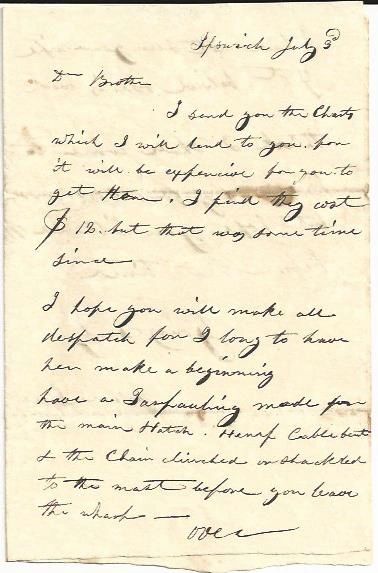 Ipswich July 3d
Dr Brother
I send you the Charts
which I will lend to you. for
it will be expencive for you to
get them. I find they cost
$12. but that was some time
since
I hope you will make all
despatch for I long to have
her make a beginning
have a Tarpauling made for
the main Hatch. Hemp Cable bent
& the Chain clinched or shackled
to the mast before you leave
the wharf —
over